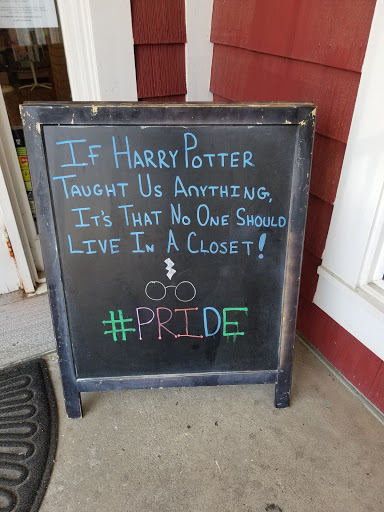 If Harry Potter
Taught Us Anything,
It's That No One Should
Live In A Closet!
#PRIDE